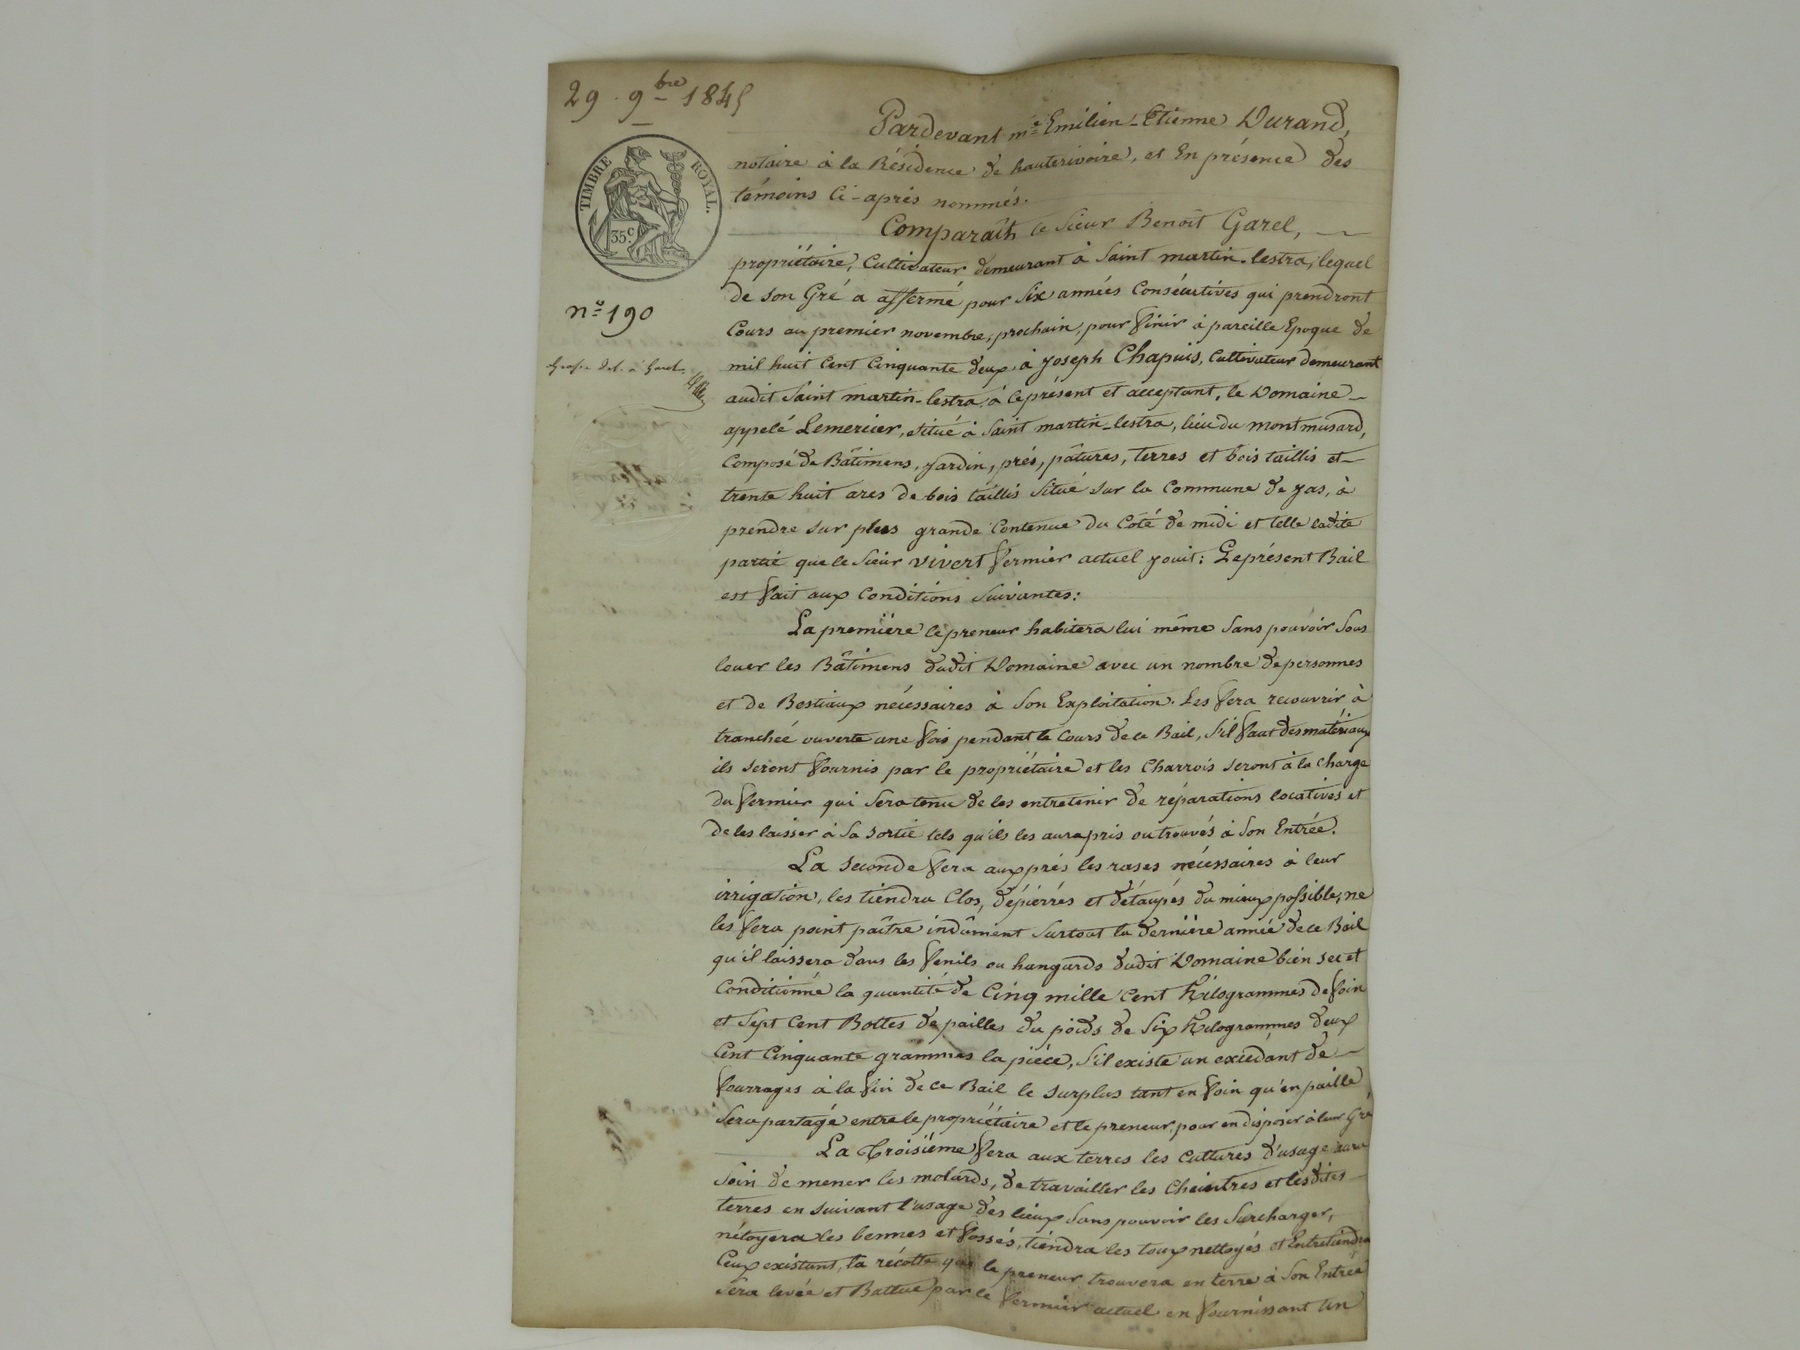 29 9bre 1845
TIMBRE ROYAL.
35c
n° 190
Pardevant me Emilien-Etienne Durand,
notaire à la Résidence de hauterivoire, et En présence des
témoins Ci-après nommés.
Comparaît le Sieur Benoît Garel,
propriétaire, Cultivateur demeurant à Saint martin-lestra, lequel
de son Gré a affermé pour Six années Consécutives qui prendront
Cours au premier novembre, prochain, pour finir à pareille Epoque de
mil huit Cent Cinquante deux à Joseph Chapuis, Cultivateur demeurant
audit Saint martin-lestra à Ceprésent et acceptant, le Domaine
appelé Lemercier, situé à Saint martin-lestra, lieu du montmusard,
Composé de Bâtimens, jardin, prés, pâtures, terres et bois taillis et
trente huit ares de bois taillis situé sur la Commune de jas, à
prendre sur plus grande Contenue du Côté de midi et telle ladite
partie que le Sieur vivert fermier actuel jouit : Leprésent Bail
est fait aux Conditions Suivantes :
La première le preneur habitera lui même Sans pouvoir Sous
louer les Bâtimens dudit Domaine avec un nombre de personnes
et de Bestiaux nécessaires à Son Exploitation. Les fera recouvrir à
tranchée ouverte une fois pendant le Cours de ce Bail, S'il faut des matériaux
ils seront fournis par le propriétaire et les Charrois seront à la charge
du fermier qui Sera tenu de les entretenir de réparations locatives et
de les laisser à Sa sortie tels qu'ils les aura pris ou trouvés à Son Entrée.
La Seconde fera aux prés les rases nécessaires à leur
irrigation, les tiendra Clos, dépierrés et détaupés du mieux possible, ne
les fera point paître indûment Surtout la dernière année de ce Bail
qu'il laissera dans les fenils ou hangards dudit Domaine bien sec et
Conditionné la quantité de Cinq mille Cent Kilogrammes de foin
et Sept Cent Bottes de pailles du poids de Six Kilogrammes deux
Cent Cinquante grammes la pièce, S'il existe un excédant de
fourrages à la fin de ce Bail le surplus tant en foin qu'en paille
Sera partagé entre le propriétaire et le preneur, pour en disposer à leur Gré
La Troisième fera aux terres les Cultures d'usage aura
Soin de mener les molards, de travailler les Cheintres et lesdites
terres en suivant l'usage des lieux Sans pouvoir les Surcharger,
nétoyera les bennes et fossés, tiendra les toux nettoyés et Entretiendra
Ceux existans, la récolte que le preneur trouvera en terre à Son Entrée
Sera levée et Battue par le fermier actuel en fournissant un